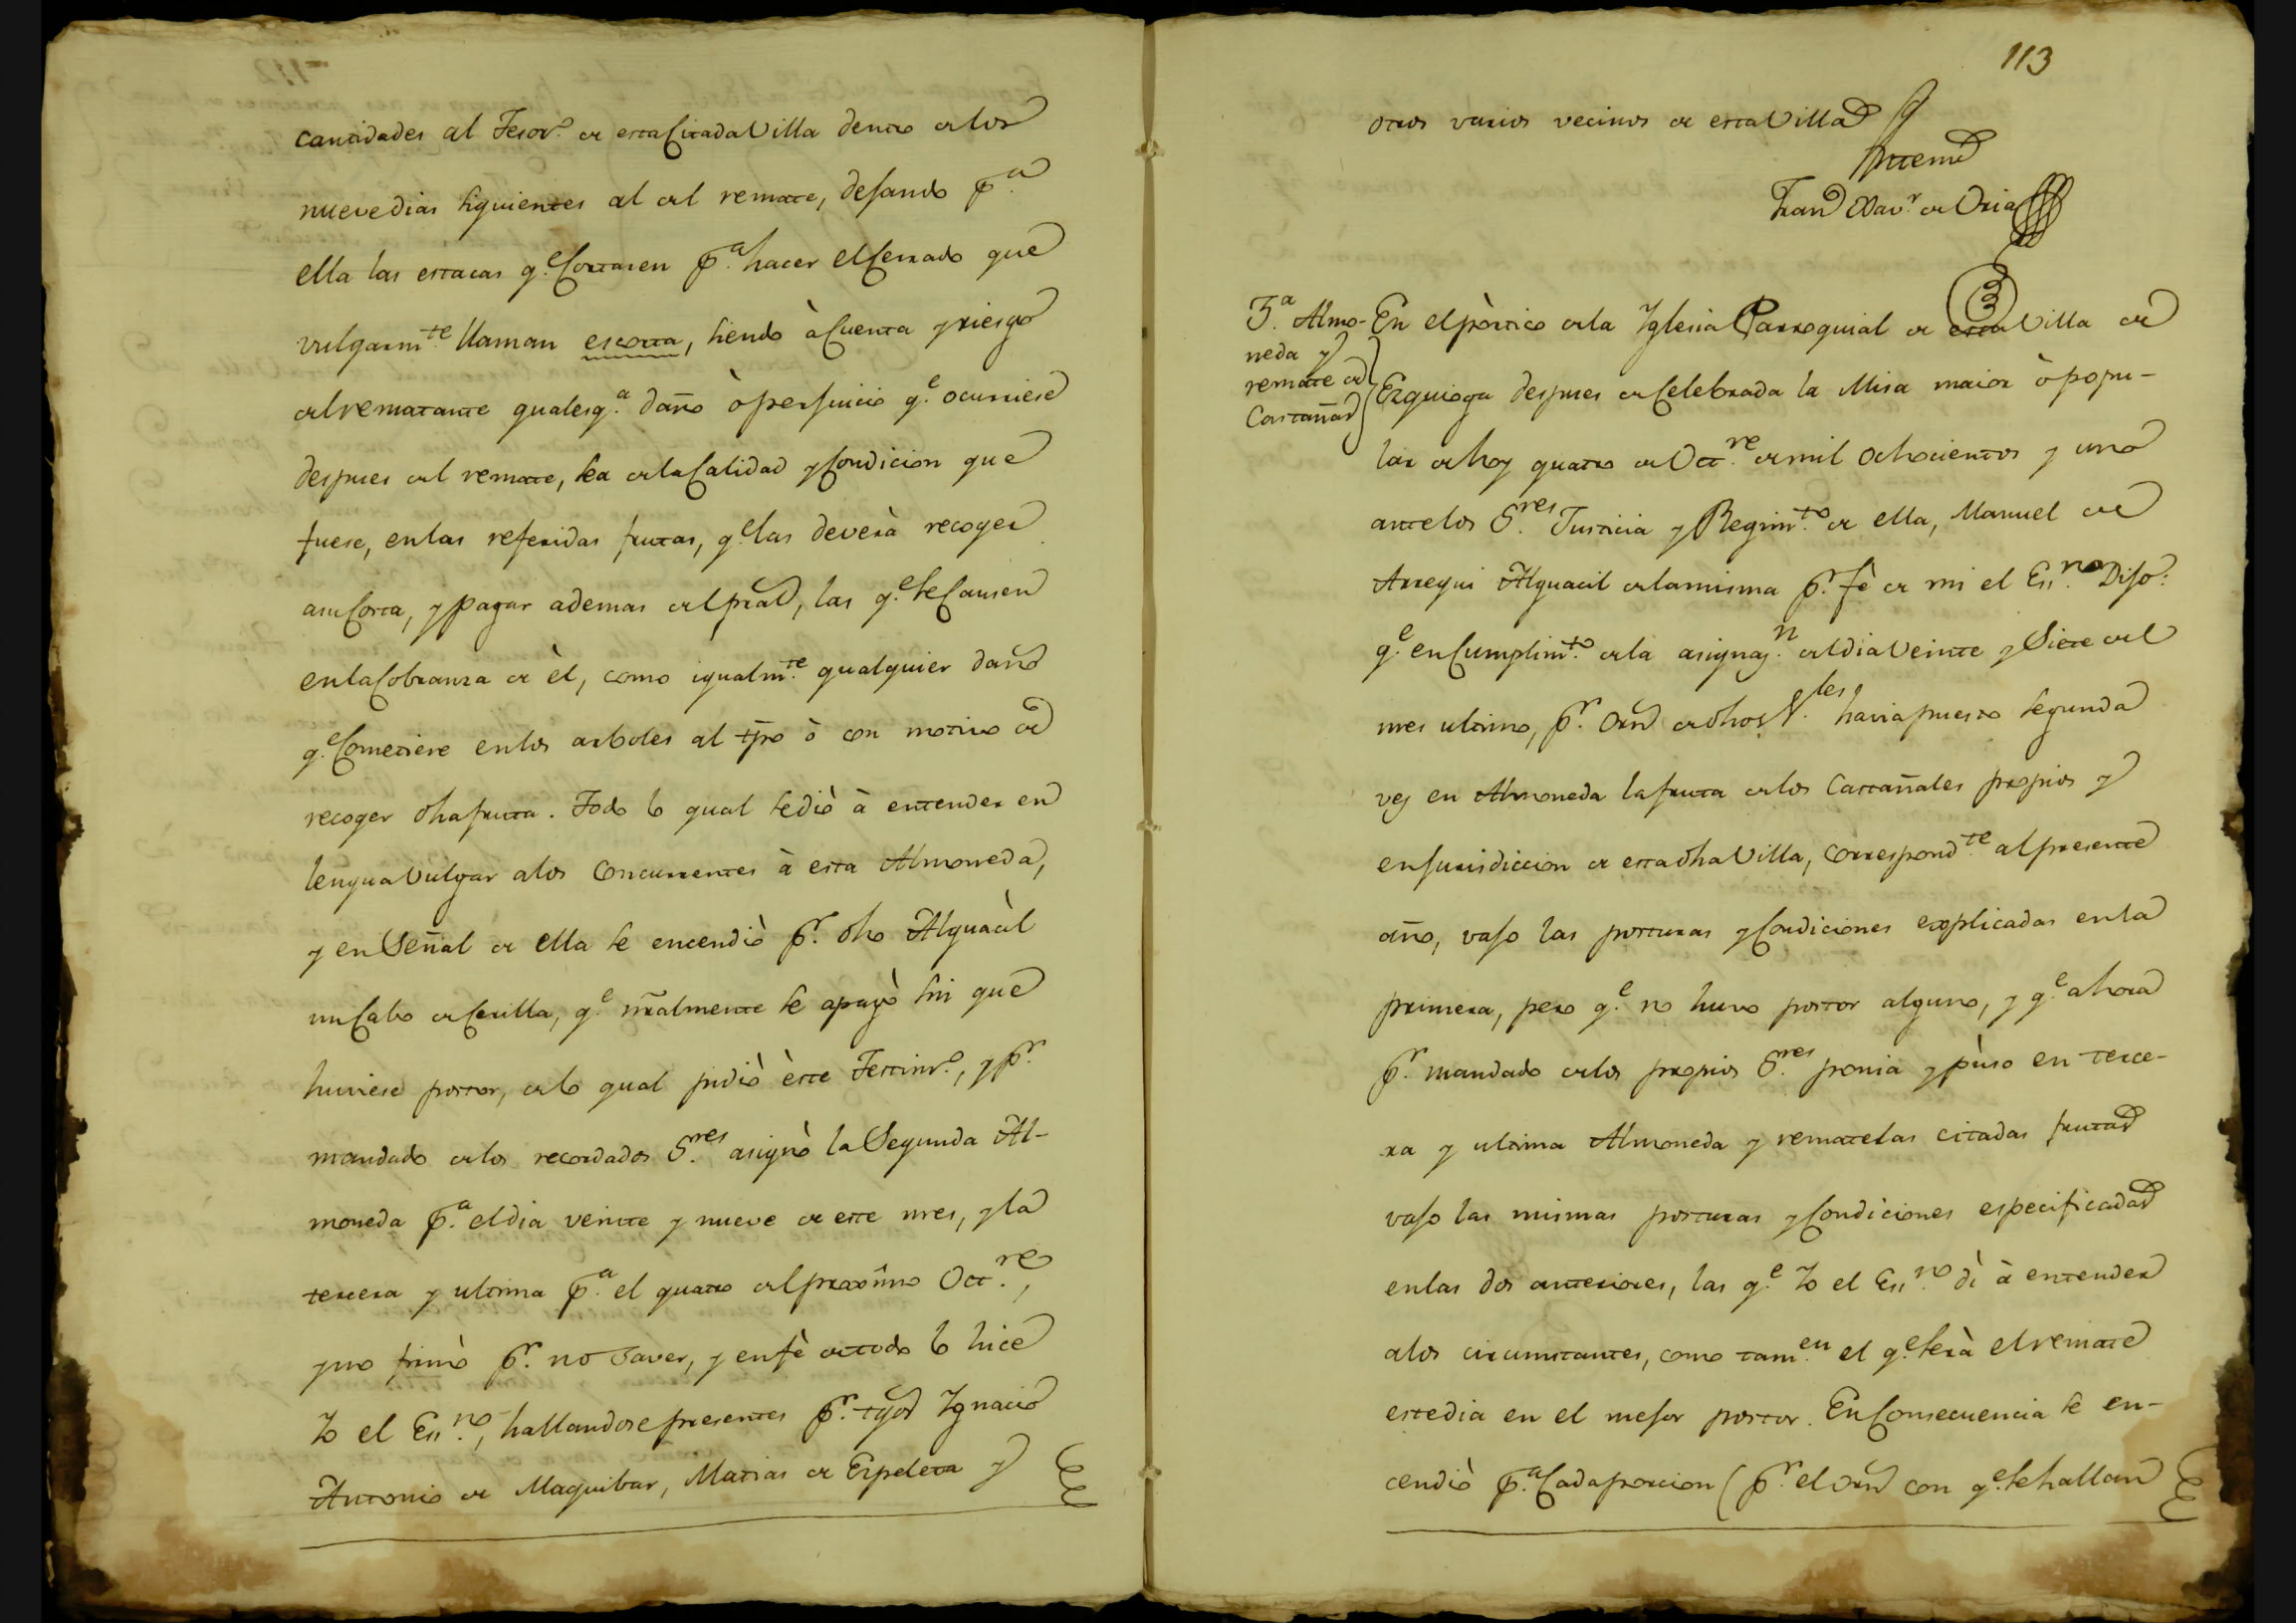 cantidades al Tesor.º de esta Citada Villa dentro de los
nueve dias siguientes al del remate, dejando p.ª
ella las estacas q.e Cortasen p.ª hacer el Cerrado que
vulgarm.te llaman escorta, siendo à Cuenta y riesgo
del rematante qualesq.ª daño ò perjuicio q.e ocurriese
despues del remate, sea de la Calidad y Condicion que
fuese, en las referidas frutas, q.e las deverà recoger
a su Costa, y pagar ademas del pral, las q.e se Causen
en la Cobranza de èl, como igualm.te qualquier daño
q.e Cometiere en los arboles al tpo ò con motivo de
recoger dha fruta. Todo lo qual se diò à entender en
lengua Vulgar a los Concurrentes à esta Almoneda,
y en Señal de ella se encendiò p.r dho Alguàcil
un Cabo de Cerilla, q.e nralmente se apagò sin que
huviese postor, de lo qual pidiò èste Testim.º, y p.r
mandado de los recordados S.res asignò la Segunda Al-
moneda p.ª el dia veinte y nueve de este mes, y la
tercera y ultima p.ª el quatro del proximo Oct.re,
y no firmò p.r no saver, y en fè de todo lo hice
Yo el Es.no, hallandose presentes p.r tgos Ignacio
Antonio de Maquibar, Matias de Ezpeleta y
113
otros varios vecinos de esta Villa
Antemi
Fran.co Xav.r de Oria
3
3.ª Almo-
neda y
remate de
Castañas
En el pòrtico de la Iglesia Parroquial de esta Villa de
Ezquioga despues de Celebrada la Misa maior ò popu-
lar de hoy quatro de Oct.re de mil ochocientos y uno
ante los S.res Justicia y Regim.to de ella, Manuel de
Arregui Alguacil de la misma p.r fè de mi el Es.no Dijo:
q.e en Cumplim.to de la asignaz.n del dia Veinte y Siete del
mes ultimo, p.r orn de dhos S.res havia puesto segunda
vez en Almoneda la fruta de los Castañales propios y
en jurisdiccion de esta dha Villa, correspond.te al presente
año, vajo las posturas y Condiciones explicadas en la
primera, pero q.e no huvo postor alguno, y q.e ahora
p.r mandado de los propios S.res ponia y pùso en terce-
ra y ultima Almoneda y remate las citadas frutas
vajo las mismas posturas y Condiciones especificadas
en las dos anteriores, las q.e Yo el Es.no dì à entender
a los circunstantes, como tam.en el q.e serà el remate
este dia en el mejor postor. En Consecuencia se en-
cendiò p.ª Cada porcion (p.r el orn con q.e se hallan